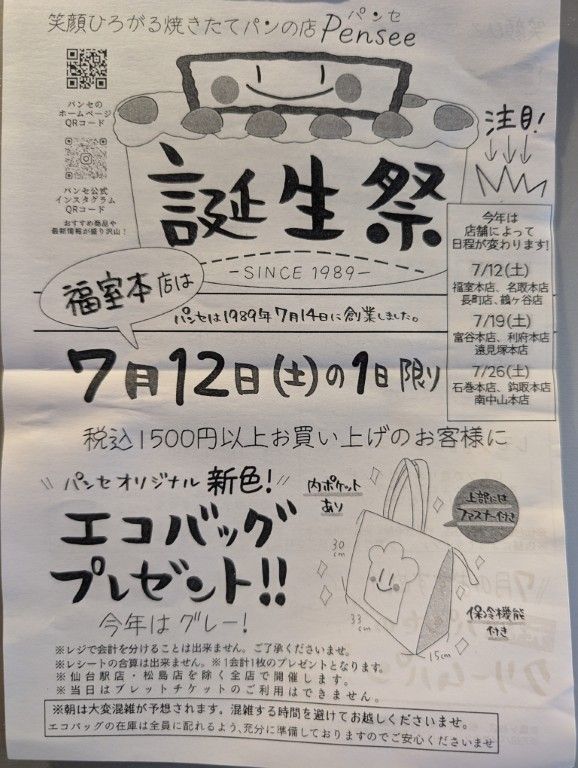 笑顔ひろがる焼きたてパンの店 Pensee
パンセ
パンセの
ホームページ
QRコード
パンセ公式
インスタグラム
QRコード
おすすめ商品や
最新情報が盛り沢山!
注目!
誕生祭
-SINCE 1989-
今年は
店舗によって
日程が変わります!
7/12(土)
福室本店、名取本店
長町店、鶴ヶ谷店
7/19(土)
富谷本店、利府本店
遠見塚本店
7/26(土)
石巻本店、鈎取本店
南中山本店
福室本店は
パンセは1989年7月14日に創業しました。
7月12日(土)の1日限り
税込1500円以上お買い上げのお客様に
パンセオリジナル 新色!
エコバッグ
プレゼント!!
今年はグレー!
内ポケット
あり
上部には
ファスナー付き
30cm
33cm
15cm
保冷機能
付き
※レジで会計を分けることは出来ません。ご了承くださいませ。
※レシートの合算は出来ません。※1会計1枚のプレゼントとなります。
※仙台駅店・松島店を除く全店で開催します。
※当日はブレットチケットのご利用はできません。
※朝は大変混雑が予想されます。混雑する時間を避けてお越しくださいませ。
エコバッグの在庫は全員に配れるよう、充分に準備しておりますのでご安心くださいませ